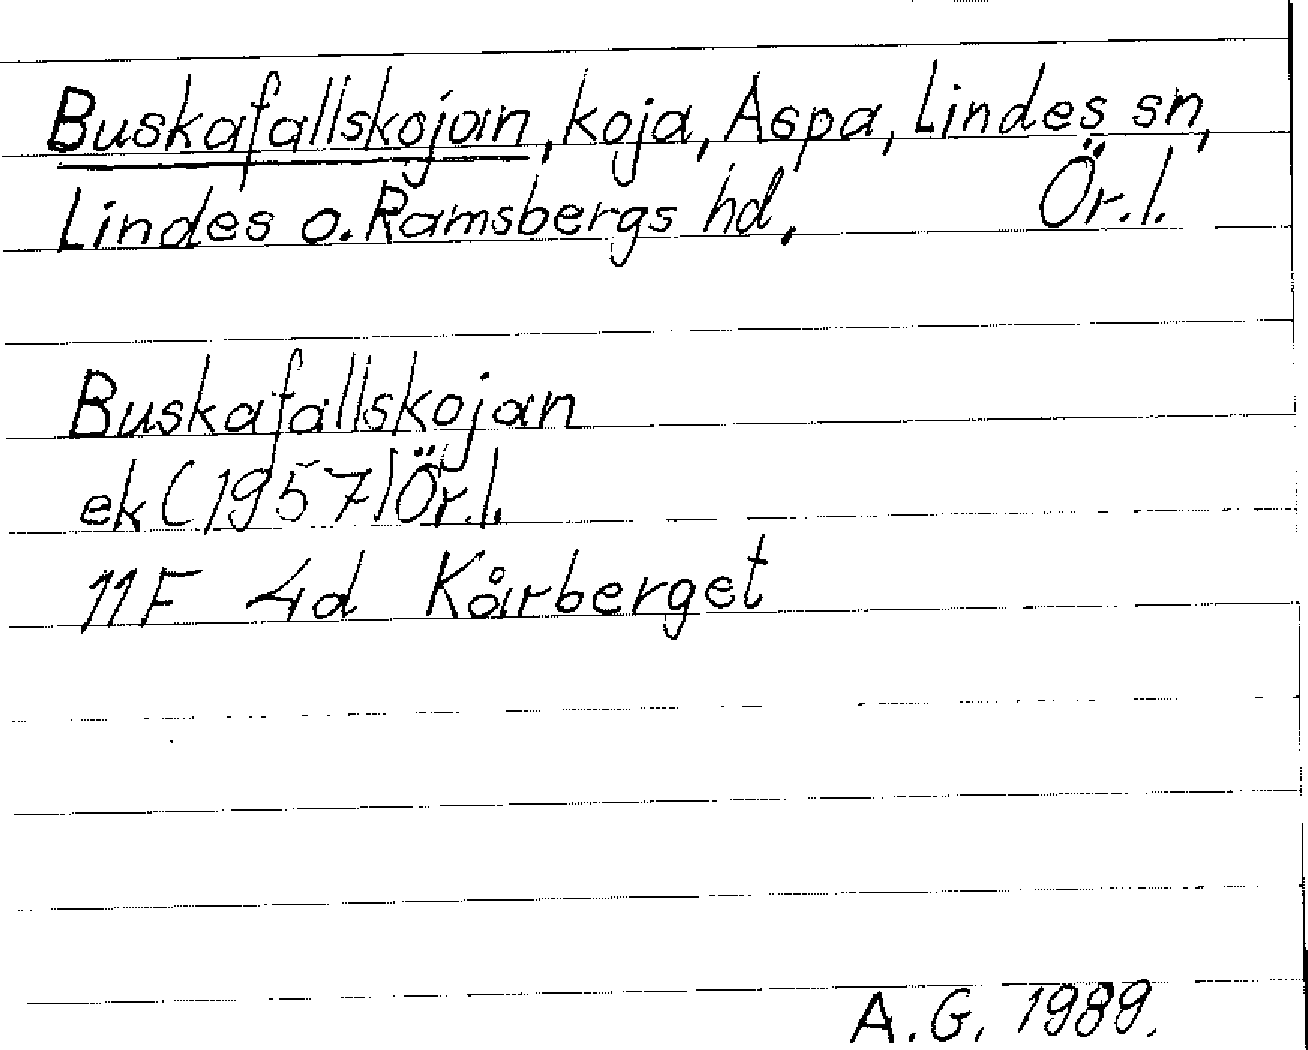 Buskafallskojan, koja, Aspa, Lindes sn,
Lindes o. Ramsbergs hd, Ör.l.
Buskafallskojan
ek (1957) Ör.l.
11F 4d Kårberget
A.G. 1989.